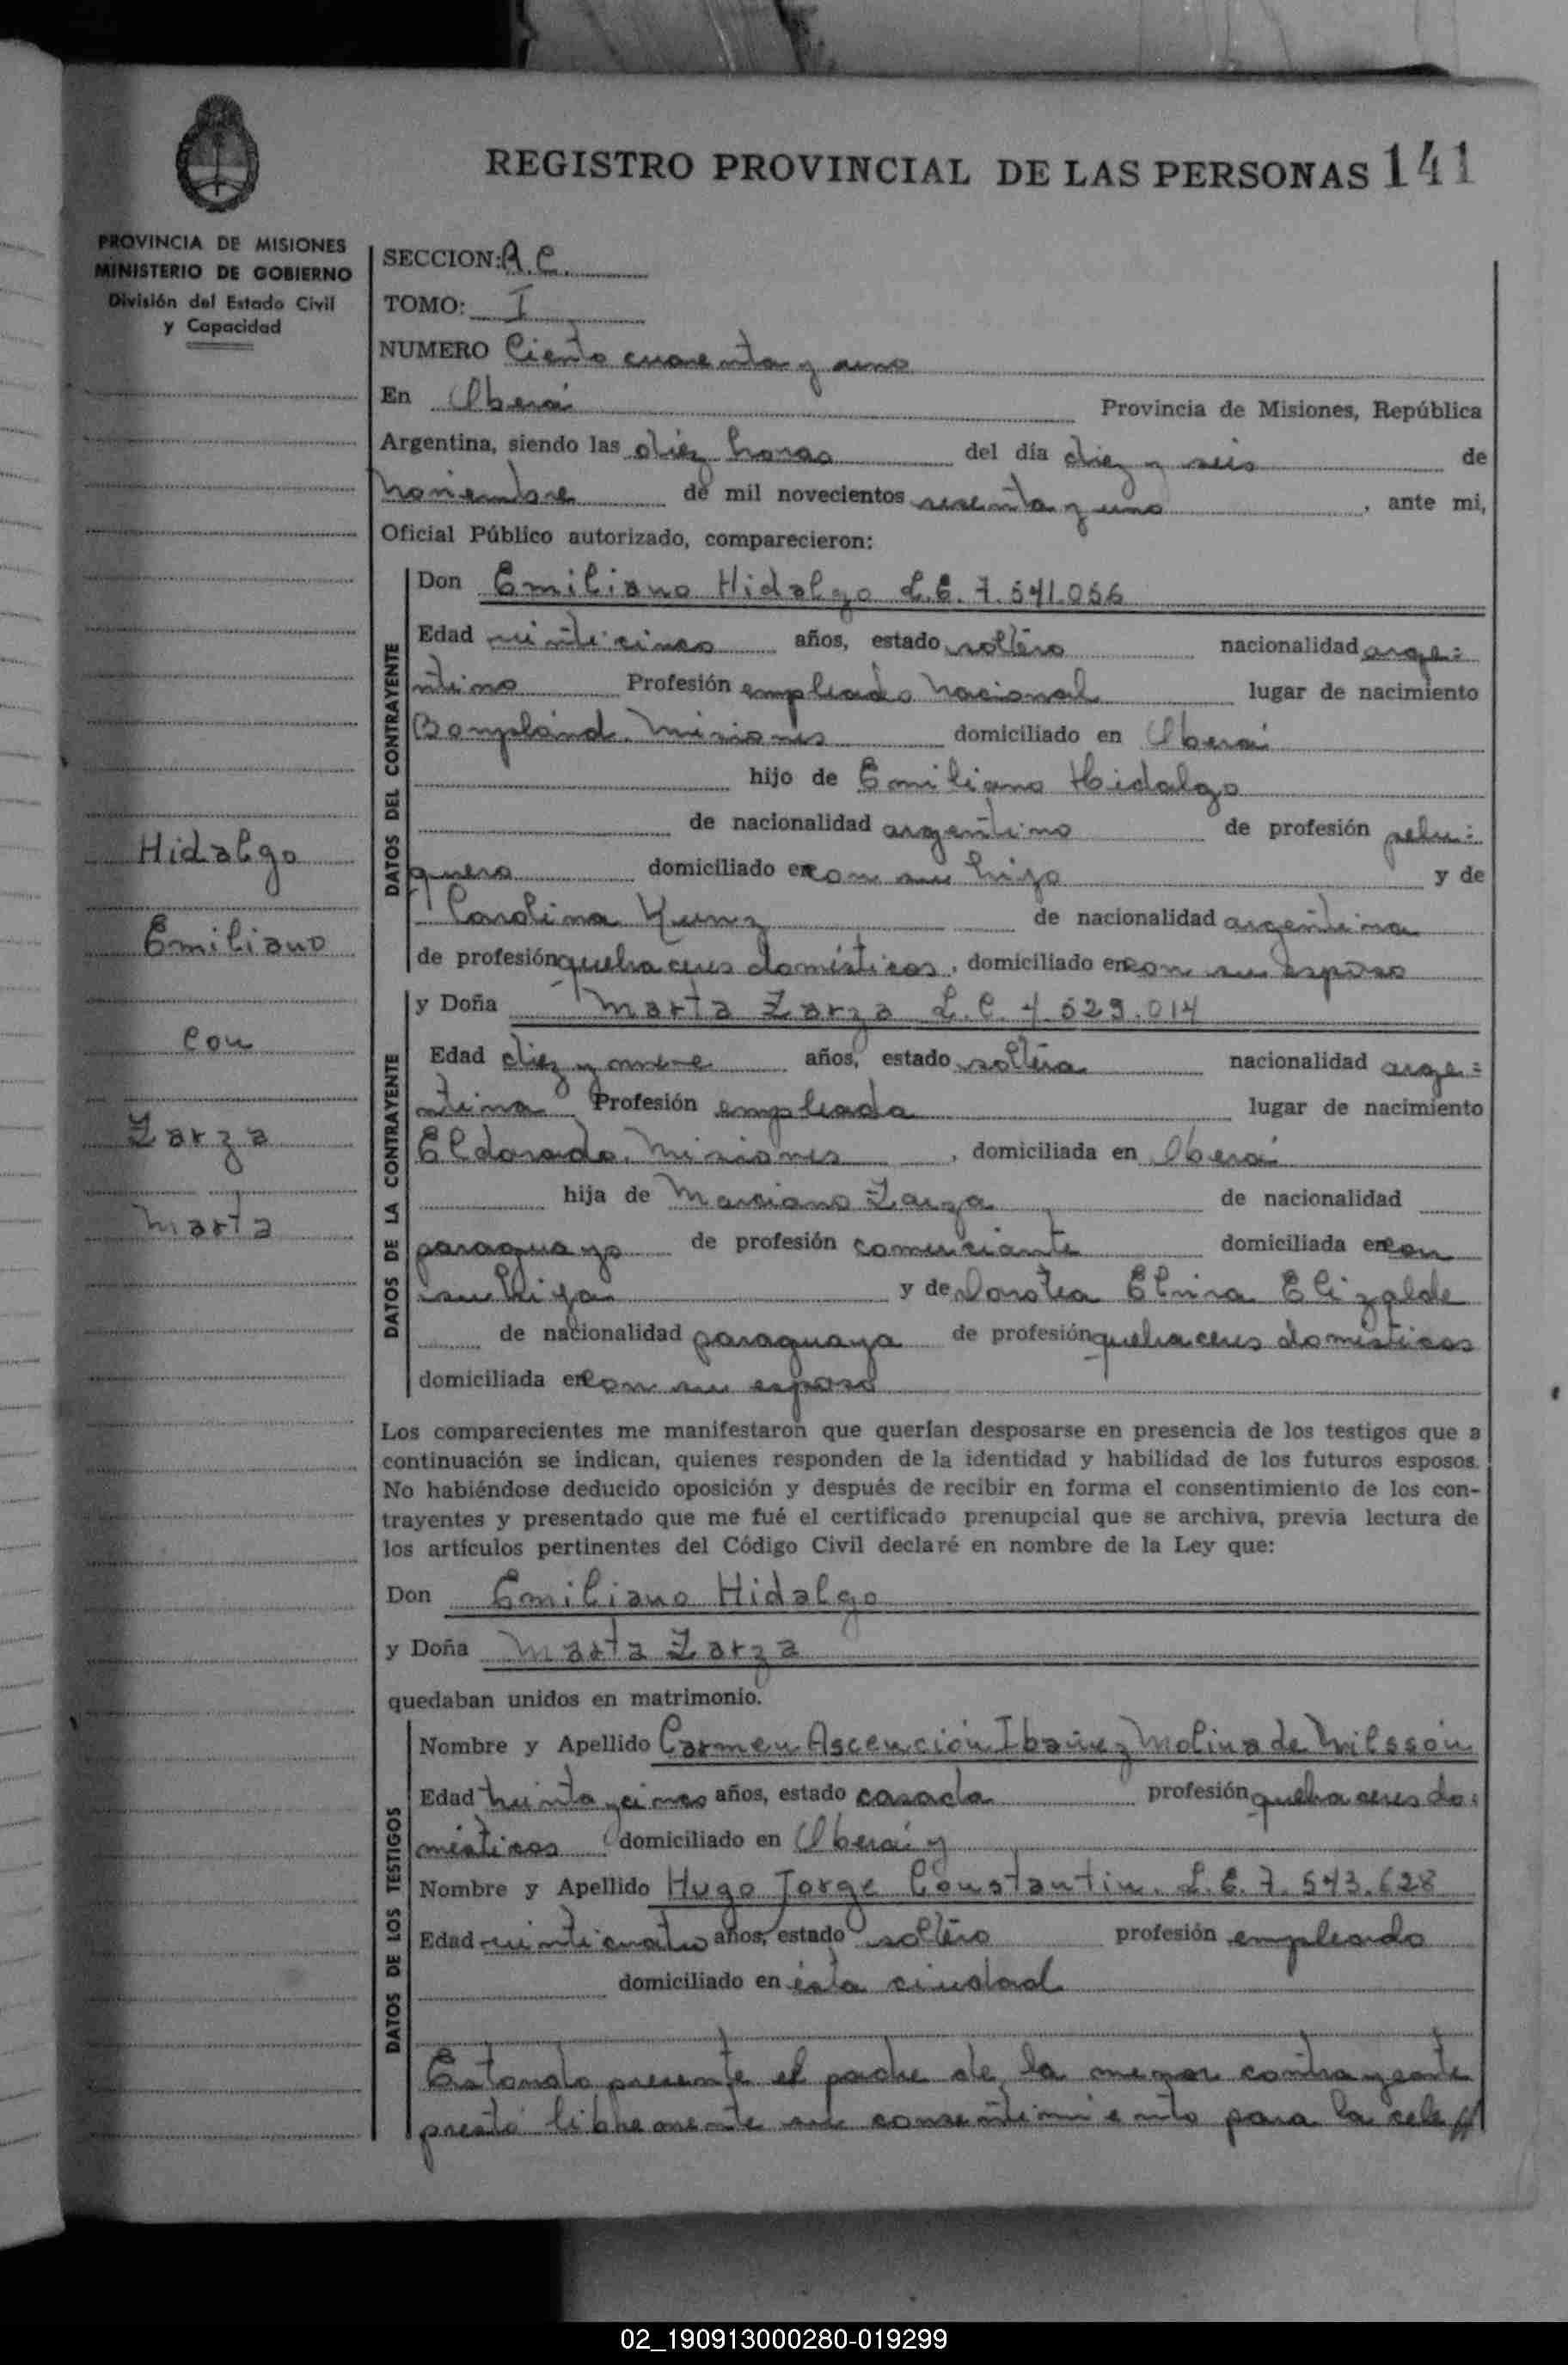 REGISTRO PROVINCIAL DE LAS PERSONAS 141
PROVINCIA DE MISIONES
MINISTERIO DE GOBIERNO
División del Estado Civil
y Capacidad
Hidalgo
Emiliano
con
Zarza
Marta
SECCION: A.C.
TOMO: I
NUMERO Ciento cuarenta y uno
En Oberá Provincia de Misiones, República
Argentina, siendo las diéz horas del día diez y seis de
noviembre de mil novecientos sesenta y uno, ante mi,
Oficial Público autorizado, comparecieron:
DATOS DEL CONTRAYENTE
Don Emiliano Hidalgo L.E. 7.541.056
Edad veinticinco años, estado soltero nacionalidad arge=
ntino Profesión empleado nacional lugar de nacimiento
Bonpland. Misiones domiciliado en Oberá
hijo de Emiliano Hidalgo
de nacionalidad argentino de profesión pelu=
quero domiciliado en con su hijo y de
Carolina Kunz de nacionalidad argentina
de profesión quehaceres domésticos, domiciliado en con su esposo
DATOS DE LA CONTRAYENTE
y Doña Marta Zarza L.C. 4.529.014
Edad diez y nueve años, estado soltera nacionalidad arge=
ntina Profesión empleada lugar de nacimiento
Eldorado. Misiones, domiciliada en Oberá
hija de Marciano Zarza de nacionalidad
paraguayo de profesión comerciante domiciliada en con
su hija y de Dorotea Elvira Elizalde
de nacionalidad paraguaya de profesión quehaceres domésticos
domiciliada en con su esposo
Los comparecientes me manifestaron que querían desposarse en presencia de los testigos que a
continuación se indican, quienes responden de la identidad y habilidad de los futuros esposos.
No habiéndose deducido oposición y después de recibir en forma el consentimiento de los con-
trayentes y presentado que me fué el certificado prenupcial que se archiva, previa lectura de
los artículos pertinentes del Código Civil declaré en nombre de la Ley que:
Don Emiliano Hidalgo
y Doña Marta Zarza
quedaban unidos en matrimonio.
DATOS DE LOS TESTIGOS
Nombre y Apellido Carmen Ascención Ibañez Molina de Nilsson
Edad treinta y cinco años, estado casada profesión quehaceres do=
mésticos domiciliado en Oberá y
Nombre y Apellido Hugo Jorge Constantin. L.E. 7.543.628
Edad veinticuatro años, estado soltero profesión empleado
domiciliado en ésta ciudad
Estando presente el padre de la menor contrayente
prestó libremente su consentimiento para la cele//
02_190913000280-019299